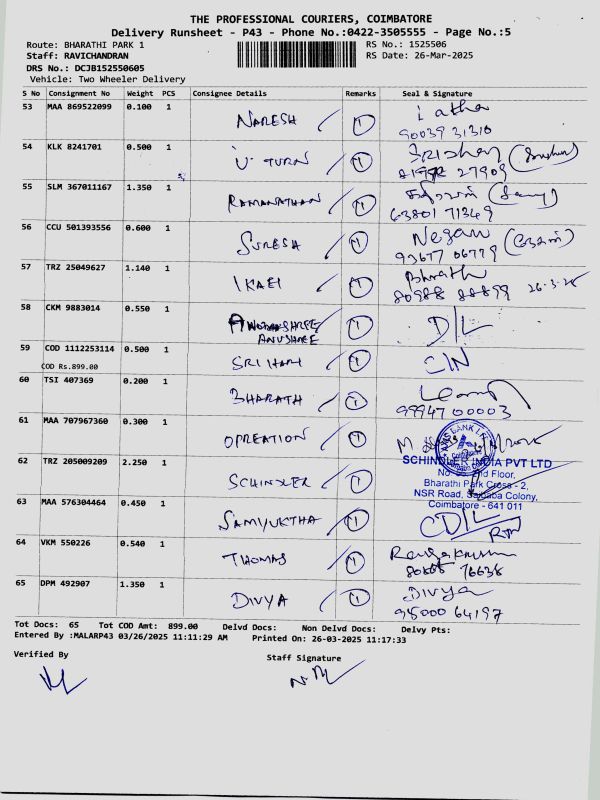 THE PROFESSIONAL COURIERS, COIMBATORE
Delivery Runsheet - P43 - Phone No.:0422-3505555 - Page No.:5
Route: BHARATHI PARK 1 RS No.: 1525506
Staff: RAVICHANDRAN RS Date: 26-Mar-2025
DRS No.: DCJB152550605
Vehicle: Two Wheeler Delivery
S No Consignment No Weight PCS Consignee Details Remarks Seal & Signature
53 MAA 869522099 0.100 1 NARESH 1 Latha
90039 31310
54 KLK 8241701 0.500 1 U TURN 1
27909
55 SLM 367011167 1.350 1 RAMANATHAN 1
63801 71349
56 CCU 501393556 0.600 1 SURESH 1 Negam
93677 06779
57 TRZ 25049627 1.140 1 IKAEI 1 Bharath
80988 88899 26-3-25
58 CKM 9883014 0.550 1 1 D/L
ANUSHREE
59 COD 1112253114 0.500 1 SRI HARI 1 C/N
COD Rs.899.00
60 TSI 407369 0.200 1 BHARATH 1
99947 00003
61 MAA 707967360 0.300 1 OPREATION 1
AXIS BANK LTD
62 TRZ 205009209 2.250 1 SCHINDLER 1 SCHINDLER INDIA PVT LTD
2nd Floor,
Bharathi Park Cross - 2,
NSR Road, Saibaba Colony,
Coimbatore - 641 011
63 MAA 576304464 0.450 1 SAMYUKTHA 1 D/L
64 VKM 550226 0.540 1 THOMAS 1
76638
65 DPM 492907 1.350 1 DIVYA 1 DIVYA
95000 64197
Tot Docs: 65 Tot COD Amt: 899.00 Delvd Docs: Non Delvd Docs: Delvy Pts:
Entered By :MALARP43 03/26/2025 11:11:29 AM Printed On: 26-03-2025 11:17:33
Verified By Staff Signature